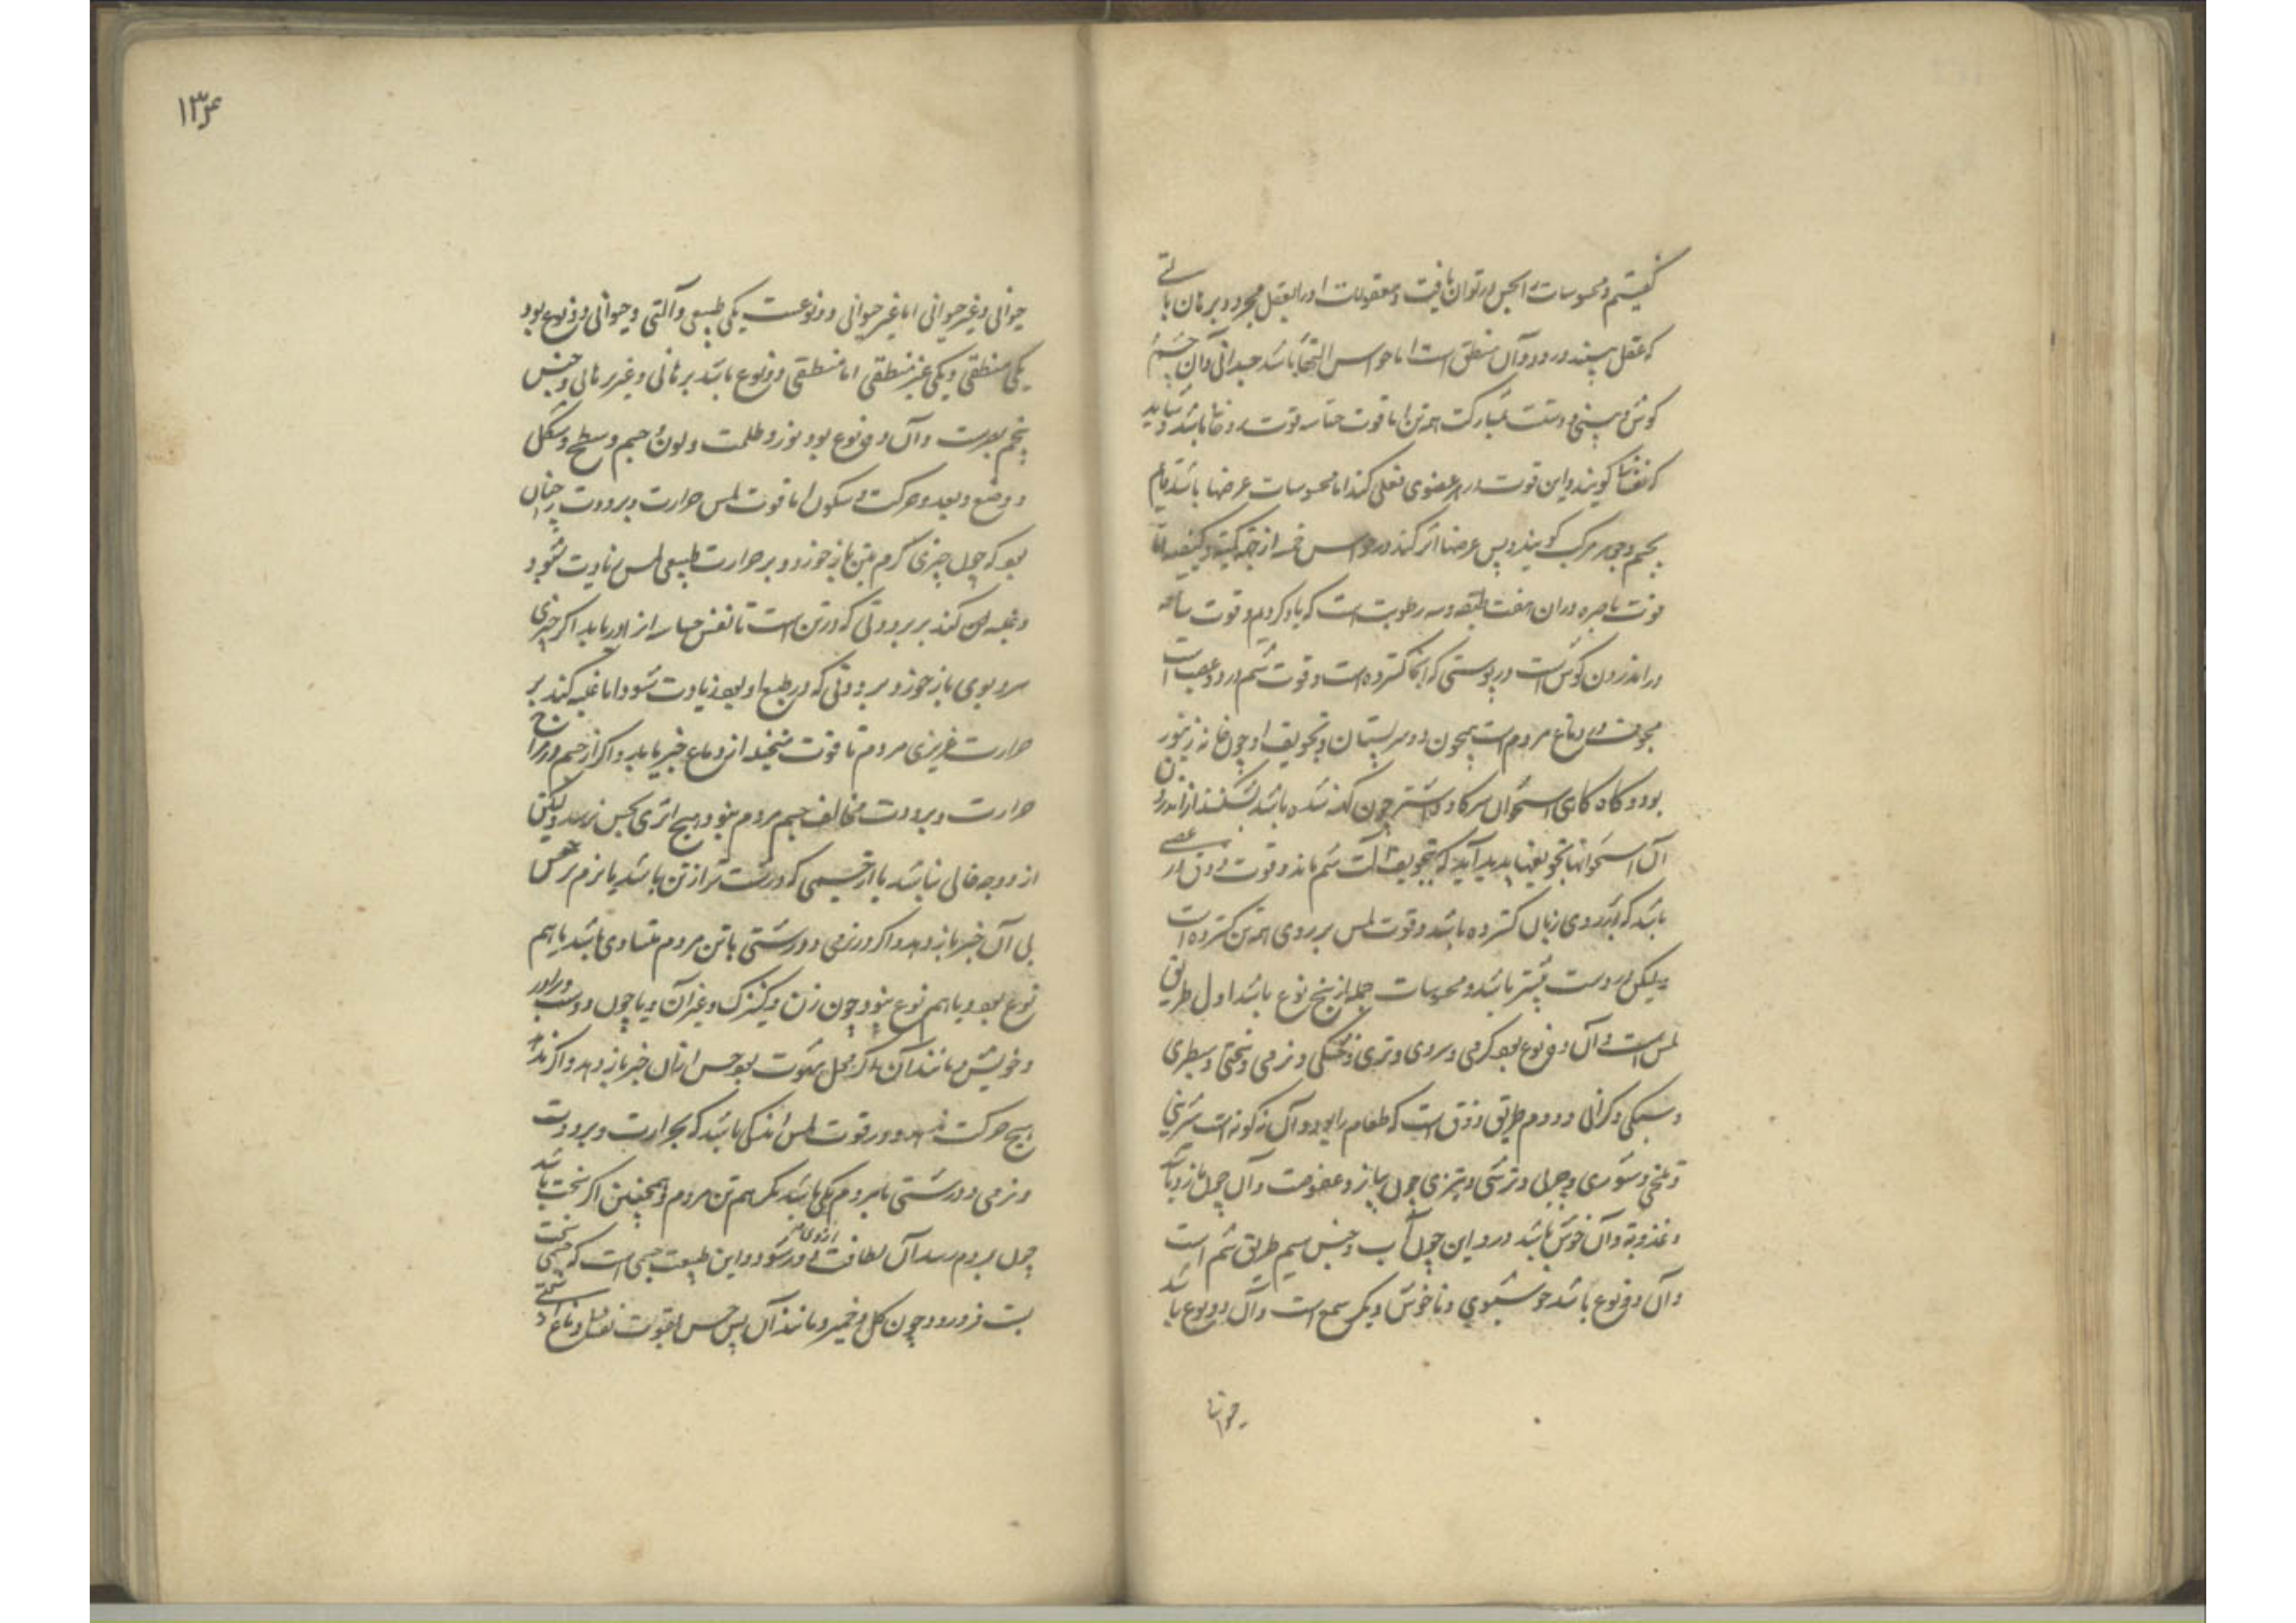 گفتیم و محسوسات را بحس در توان یافت و معقولات را در العقل مجرد و برهان یا
که عقل بیند در رود و آن منطق است اما حواس التها باشد جسدانی و آن چشم
کوش و بینی و دست بمشارکت همه تن اما قوت حساسه قوت روحا باشد و شاید
که نفسا کویند و این قوت در هر عضوی فعلی کند اما محسوسات عرضها باشد قایم
بجسم و جوهر مرکب کویند و پس عرضها اثر کند در حواس خمسه از جهة کیفیت
قوت باصره در ان هفت طبقه و سه رطوبت است که یاد کردیم و قوت سامعه
در اندرون کوش است در پوستی که آنجا کسترده است و قوت شم در دو عصب است
مجوف در دماغ مردم است همچون دو سر پستان و تجویف او چون خانه زنبور
بود و کاه کاهی استخوان سر کاو و شتر چون کهنه شده باشد بشکنند از اندرون
آن استخوانها تجویفها پدید آید که بتجویف آلت شم ماند و قوت ذوق در عصبی
باشد که بر روی زبان کسترده باشد و قوت لمس بر روی همه تن کسترده است
لیکن در دست بیشتر باشد و محسوسات جمله از پنج نوع باشد اول طریق
لمس است و آن دو نوع بود کرمی و سردی و تری و خشکی و نرمی و سختی و سطبری
و سبکی و کرانی و دوم طریق ذوق است که طعام را بود و آن نه کونه است شیرینی
و تلخی و شوری و چربی و ترشی و تیزی چون پیاز و عفوصت و آن چون مازو باشد
و عذوبة و آن خوش باشد در و این چون آب و جنس سیم طریق شم است
و آن دو نوع باشد خوشبوی و ناخوش و دیکر سمع است و آن دو نوع باشد
حیوانی
۱۳۴
حیوانی و غیر حیوانی اما غیر حیوانی دو نوعست یکی طبیعی و آلتی و حیوانی دو نوع بود
یکی منطقی و یکی غیر منطقی اما منطقی دو نوع باشد برهانی و غیر برهانی و جنس
پنجم بصرست و آن دو نوع بود نور و ظلمت و لون و جسم و سطح و شکل
و وضع و بعد و حرکت و سکون اما قوت لمس حرارت و برودت چنان
بود که چون چیزی کرم بتن باز خورد و بر حرارت طبیعی لمس زیادت شود
و غلبه کند بر برودتی که در تن است تا نفس حساسه از او دریابد اکر چیزی
سرد بوی باز خورد برودتی که در طبع او بود زیادت شود اما غلبه کند بر
حرارت غریزی مردم تا قوت متخیله از دماغ خبر یابد و اکر از جسم در مزاج
حرارت و برودت مخالف جسم مردم نبود هیچ اثری بحس نرسد و لیکن
از دو وجه خالی نباشد یا از جسمی که درشت تر از تن باشد یا نرم تر حس
بی آن خبر باز دهد و اکر در نرمی و درشتی با تن مردم متساوی باشد یا هم
نوع بود و یا هم نوع نبود چون زن و کنیزک و غیر آن و یا چون دوست و برادر
و خویش و مانند آن اکر محل شهوت بود حس از آن خبر باز دهد و اکر نه
هیچ حرکت ندهد و در قوت لمس اندکی باشد که بحرارت و برودت
و نرمی و درشتی با مردم یکی باشد مکر هم تن مردم و همچنین اکر سخت باشد
چون بردم رسد آن لطافت از وی دور شود و این طبیعت جسمی است که جسمی سخت
بست فرو رود چون کل و خمیر و مانند آن پس حس بقوت نفسانی و دماغ